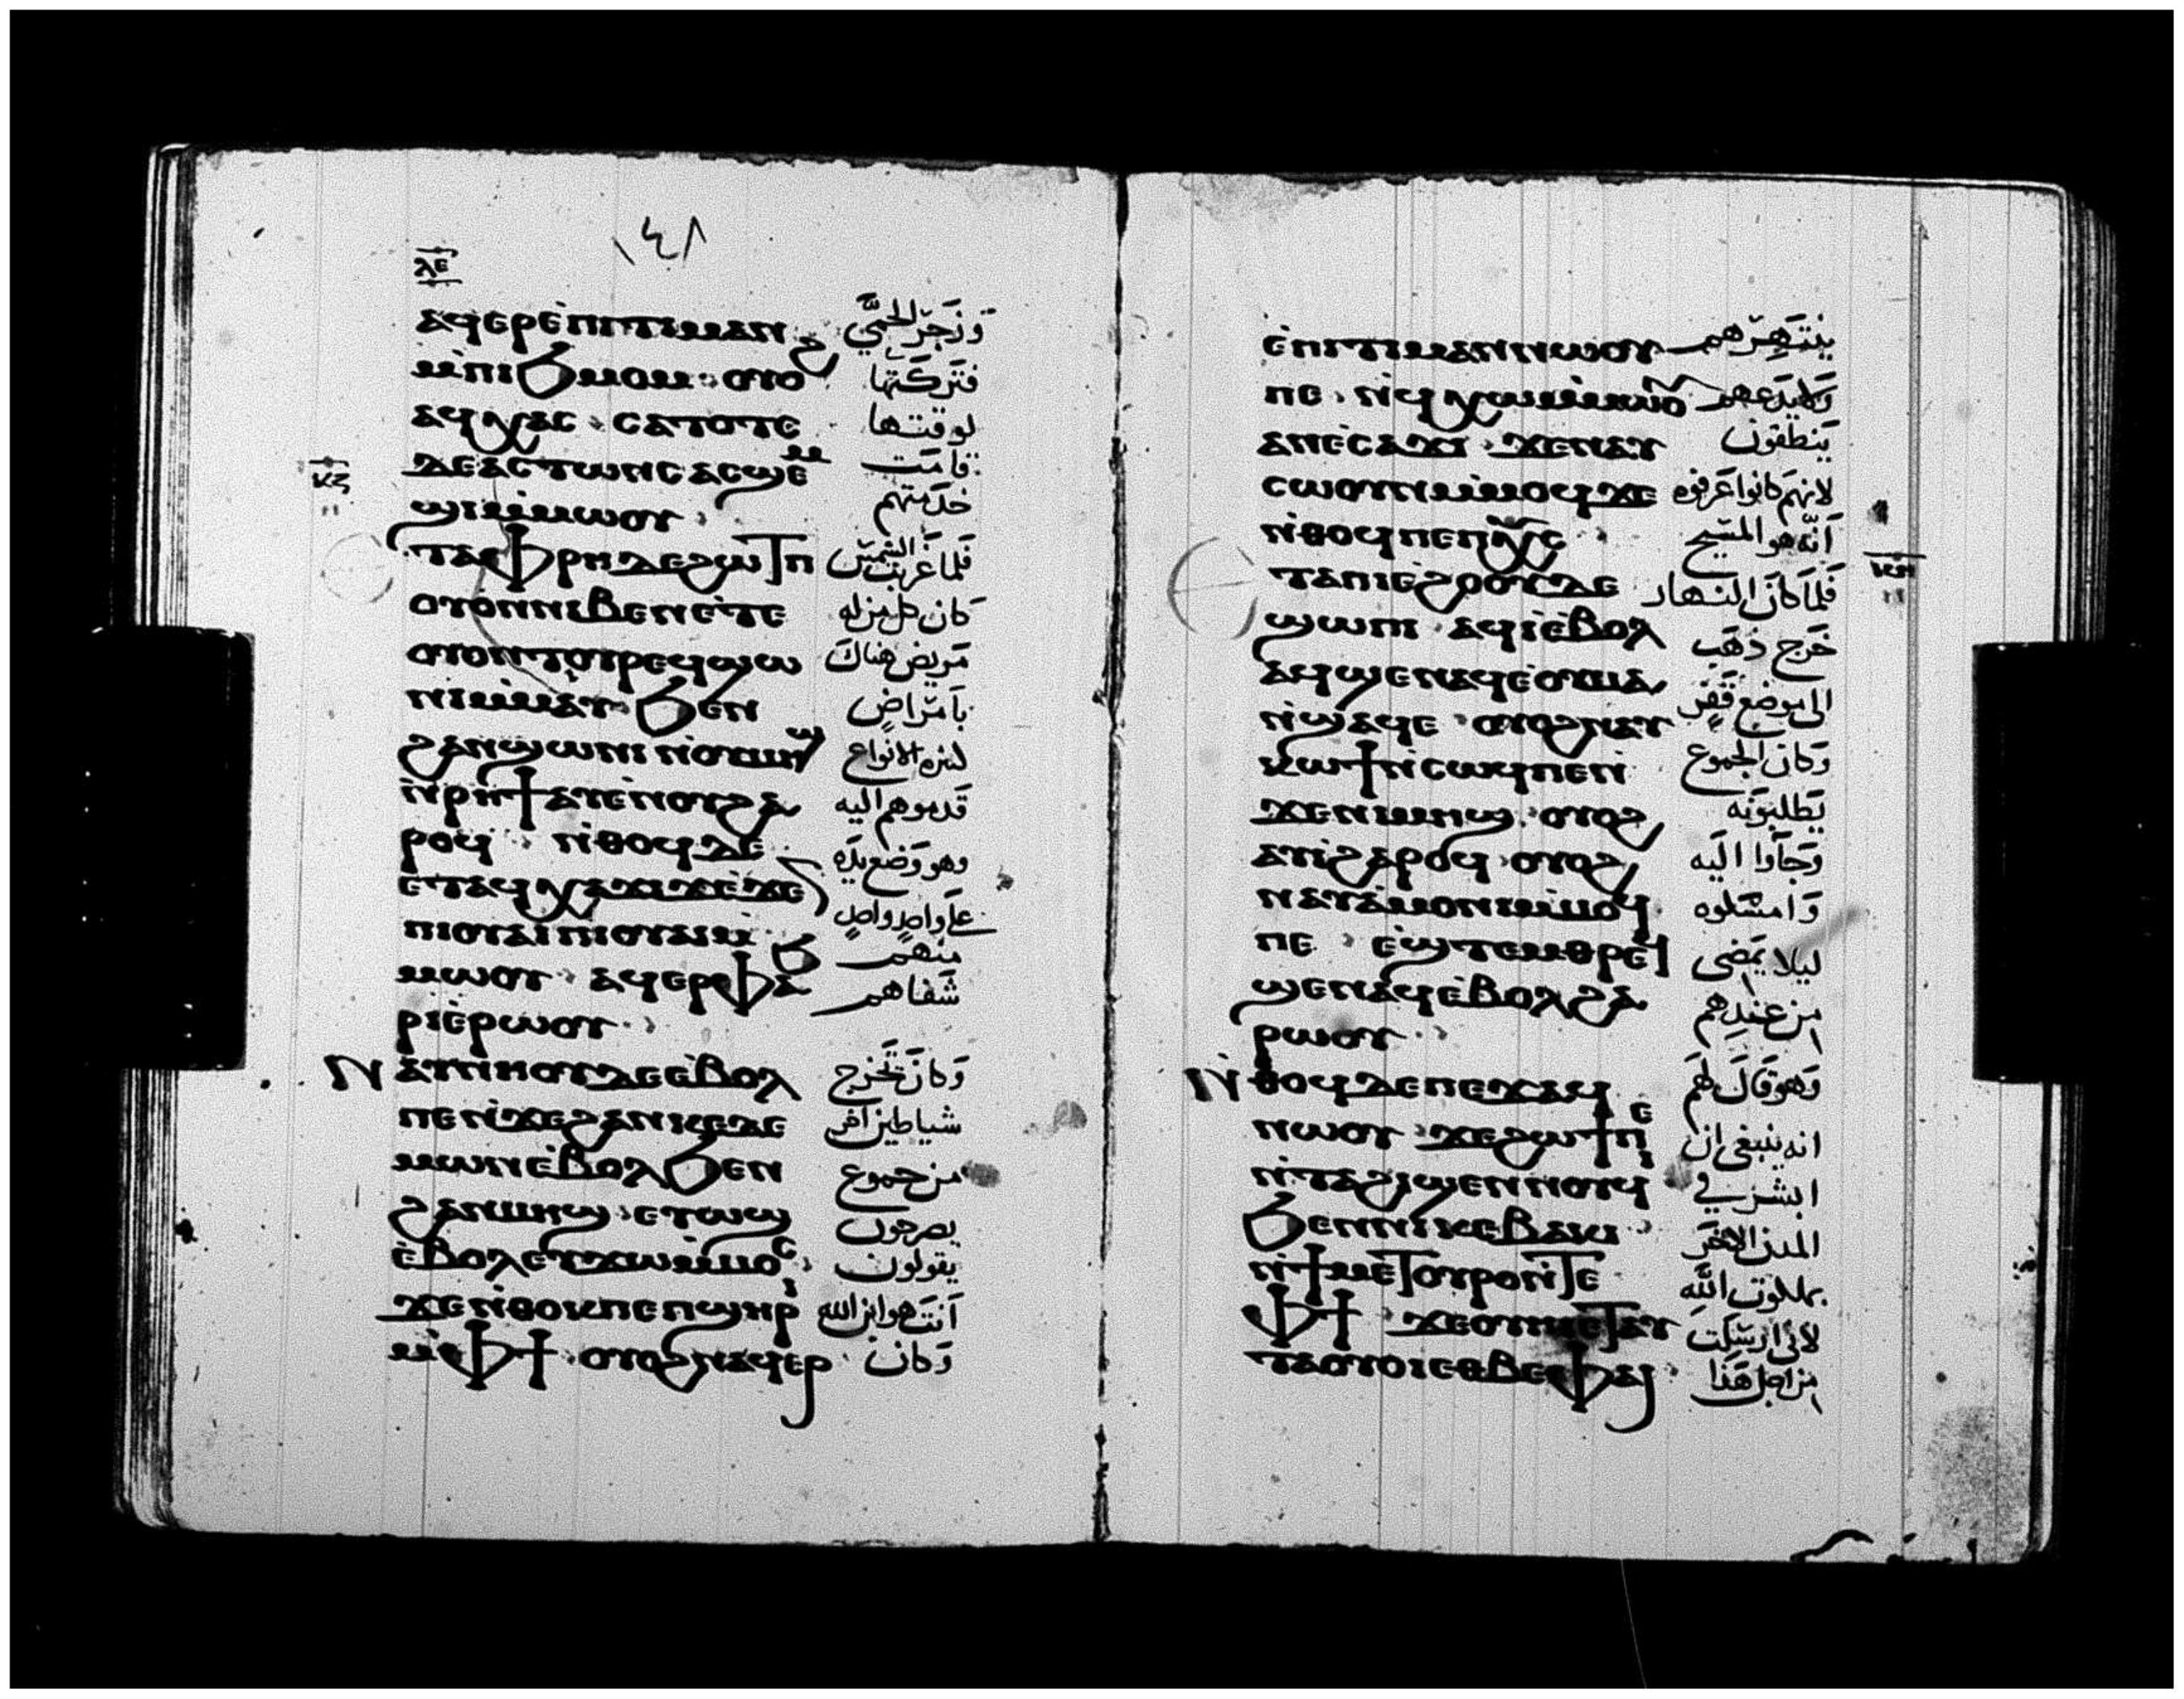 ١٤٨
ⲗⲉ
ⲁϥⲉⲣⲉ̀ⲡⲓⲧⲓⲙⲁⲛ وزجر الحمَّي
ⲙ̀ⲡⲓϧⲙⲟⲙ ⲟⲩⲟϩ فتركتها
ⲁϥⲭⲁⲥ ⲥⲁⲧⲟⲧⲉ لوقتها
ⲇⲉ ⲁⲥⲧⲱⲛⲥ ⲁⲥϣⲉⲙ قامت
ⲕⲍ
ϣⲓ ⲙ̀ⲙⲱⲟⲩ خدمتهم
ⲉⲧⲁⲫⲣⲏ ⲇⲉ ϩⲱⲧⲡ فلما غربت الشمس
ⲟⲩⲟⲛ ⲛⲓⲃⲉⲛ ⲉ̀ⲧⲉ كان كل من له
ⲟⲩⲟⲛⲧⲟⲩ ⲣⲉϥϣⲱ مريض هناك
ⲛⲓ ⲙ̀ⲙⲁⲩ ϧⲉⲛ بامراضٍ
ϩⲁⲛϣⲱⲛⲓ ⲛ̀ⲟⲩⲙⲏϣ الانواع
ⲛ̀ⲣⲏϯ ⲁⲩⲉ̀ⲛⲟⲩ ϩⲁ قدموهم اليه
ⲣⲟϥ ⲛ̀ⲑⲟϥ ⲇⲉ وهو وضع يده
ⲉⲧⲁϥⲭⲁϫⲓϫ ⲉ̀ϫⲉⲛ علي واحدٍ واحدٍ
ⲡⲓⲟⲩⲁⲓ ⲡⲓⲟⲩⲁⲓ ⲙ̀ منهم
ⲙⲱⲟⲩ ⲁϥⲉⲣⲫⲁϧ شفاهم
ⲣⲓ ⲉ̀ⲣⲱⲟⲩ
ⲛⲁⲩⲛⲏⲟⲩ ⲇⲉ ⲉ̀ⲃⲟⲗ وكان تخرج
ⲡⲉ ⲛ̀ϫⲉ ϩⲁⲛⲕⲉⲇⲉ شياطين اخر
ⲙⲱⲛ ⲉ̀ⲃⲟⲗ ϧⲉⲛ من جموع
ϩⲁⲛⲙⲏϣ ⲉⲩⲱϣ يصرخون
ⲉ̀ⲃⲟⲗ ⲉⲩϫⲱ ⲙ̀ⲙⲟⲥ يقولون
ϫⲉ ⲛ̀ⲑⲟⲕ ⲡⲉ ⲡϣⲏⲣⲓ انت هو ابن الله
ⲙ̀ⲫϯ ⲟⲩⲟϩ ⲛⲁϥⲉⲣ وكان
ⲉ̀ⲡⲓⲧⲓⲙⲁⲛ ⲛⲱⲟⲩ ينتهرهم
ⲡⲉ ⲛ̀ϥⲭⲱ ⲙ̀ⲙⲱⲟⲩ ⲁⲛ ولم يدعهم
ⲁⲛ ⲉ̀ⲥⲁϫⲓ ϫⲉ ⲛⲁⲩ ينطقون
ⲥⲱⲟⲩⲛ ⲙ̀ⲙⲟϥ ϫⲉ لانهم كانوا عرفوه
ⲛ̀ⲑⲟϥ ⲡⲉ ⲡⲭ̅ⲥ̅ انّه هو المسيح
ⲕⲏ
ⲉⲧⲁ ⲡⲓⲉ̀ϩⲟⲟⲩ ⲇⲉ فلما كان النهار
ϣⲱⲡⲓ ⲁϥⲓ̀ ⲉ̀ⲃⲟⲗ خرج ذهب
ⲁϥϣⲉⲛⲁϥ ⲉ̀ⲟⲩⲙⲁ الى موضع قفر
ⲛ̀ϣⲁϥⲉ ⲟⲩⲟϩ ⲛⲁⲩ وكان الجموع
ⲕⲱϯ ⲛ̀ⲥⲱϥ ⲡⲉ ⲛ̀ يطلبونه
ϫⲉ ⲛⲓⲙⲏϣ ⲟⲩⲟϩ
ⲁⲩⲓ̀ ϩⲁⲣⲟϥ ⲟⲩⲟϩ وجاوا اليه
ⲛⲁⲩⲁ̀ⲙⲟⲛⲓ ⲙ̀ⲙⲟϥ وامسكوه
ⲡⲉ ⲉ̀ϣⲧⲉⲙⲑⲣⲉϥ ليلا يمضى
ϣⲉⲛⲁϥ ⲉ̀ⲃⲟⲗ ϩⲁ من عندهم
ⲣⲱⲟⲩ
ⲛ̀ⲑⲟϥ ⲇⲉ ⲡⲉϫⲁϥ وهو قال لهم
ⲛⲱⲟⲩ ϫⲉ ϩⲱϯ ⲡⲉ انه ينبغى ان
ⲛ̀ⲧⲁϩⲓϣⲉⲛⲛⲟⲩϥⲓ ابشر في
ϧⲉⲛ ⲛⲓⲕⲉⲃⲁⲕⲓ المدن الاخر
ⲛ̀ϯⲙⲉⲧⲟⲩⲣⲟ ⲛ̀ⲧⲉ بملكوت اللّه
ⲫϯ ϫⲉ ⲟⲩⲏⲓ ⲉⲧⲁⲩ لانى ارسلت
ⲧⲁⲟⲩⲟⲓ ⲉⲑⲃⲉ ⲫⲁⲓ من اجل هذا